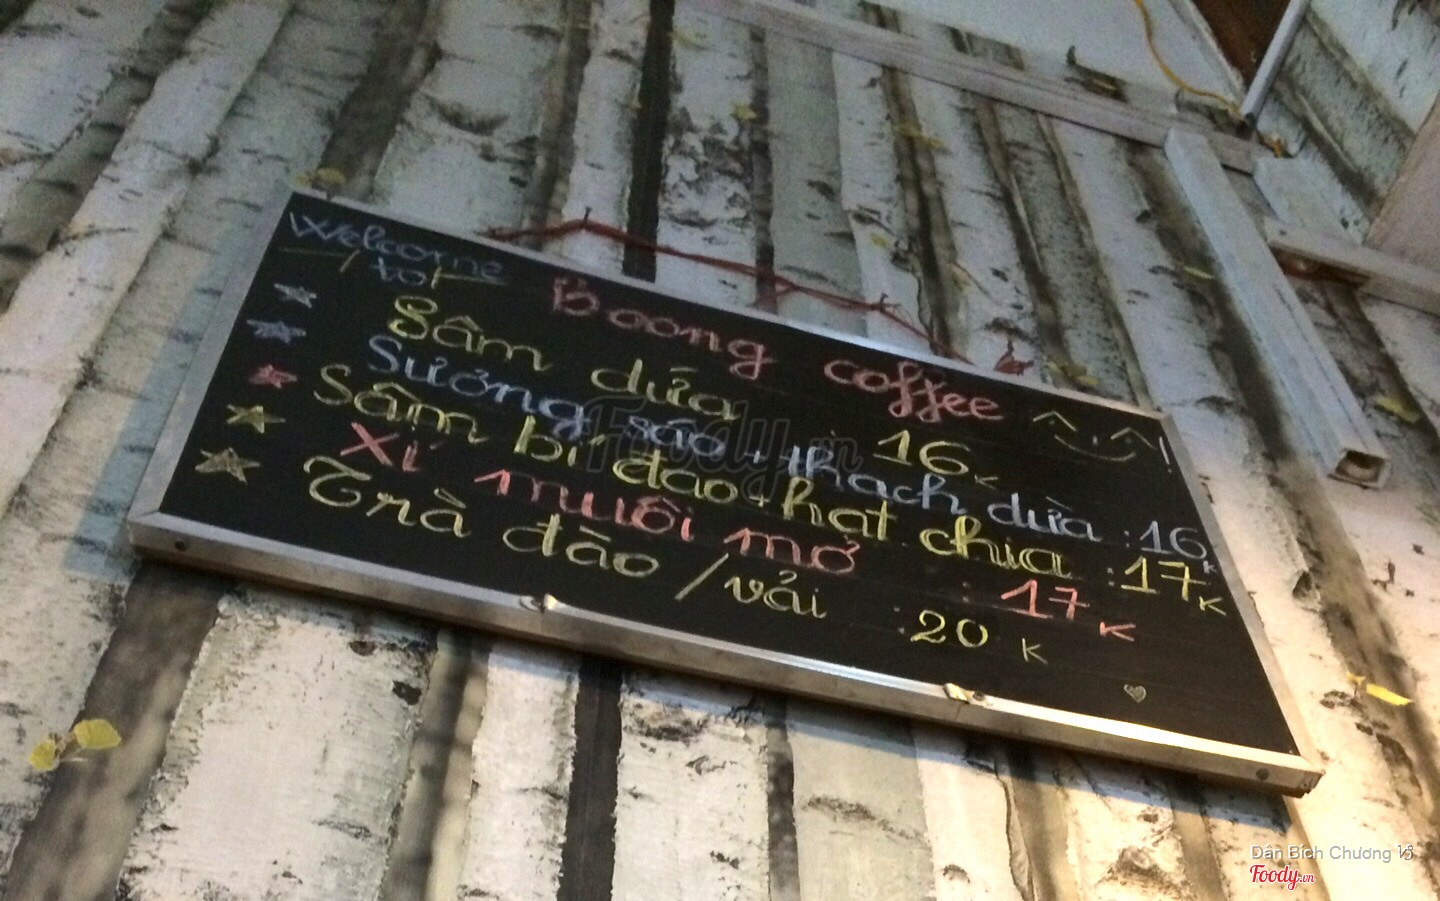 Welcome to
Boong coffee
Sâm dứa 16K
Sương sáo, thạch dừa : 16K
Sâm bí đao + hạt chia : 17K
Xí muội mơ : 17K
Trà đào / vải : 20K
Foody.vn
Dân Bích Chương
Foody.vn